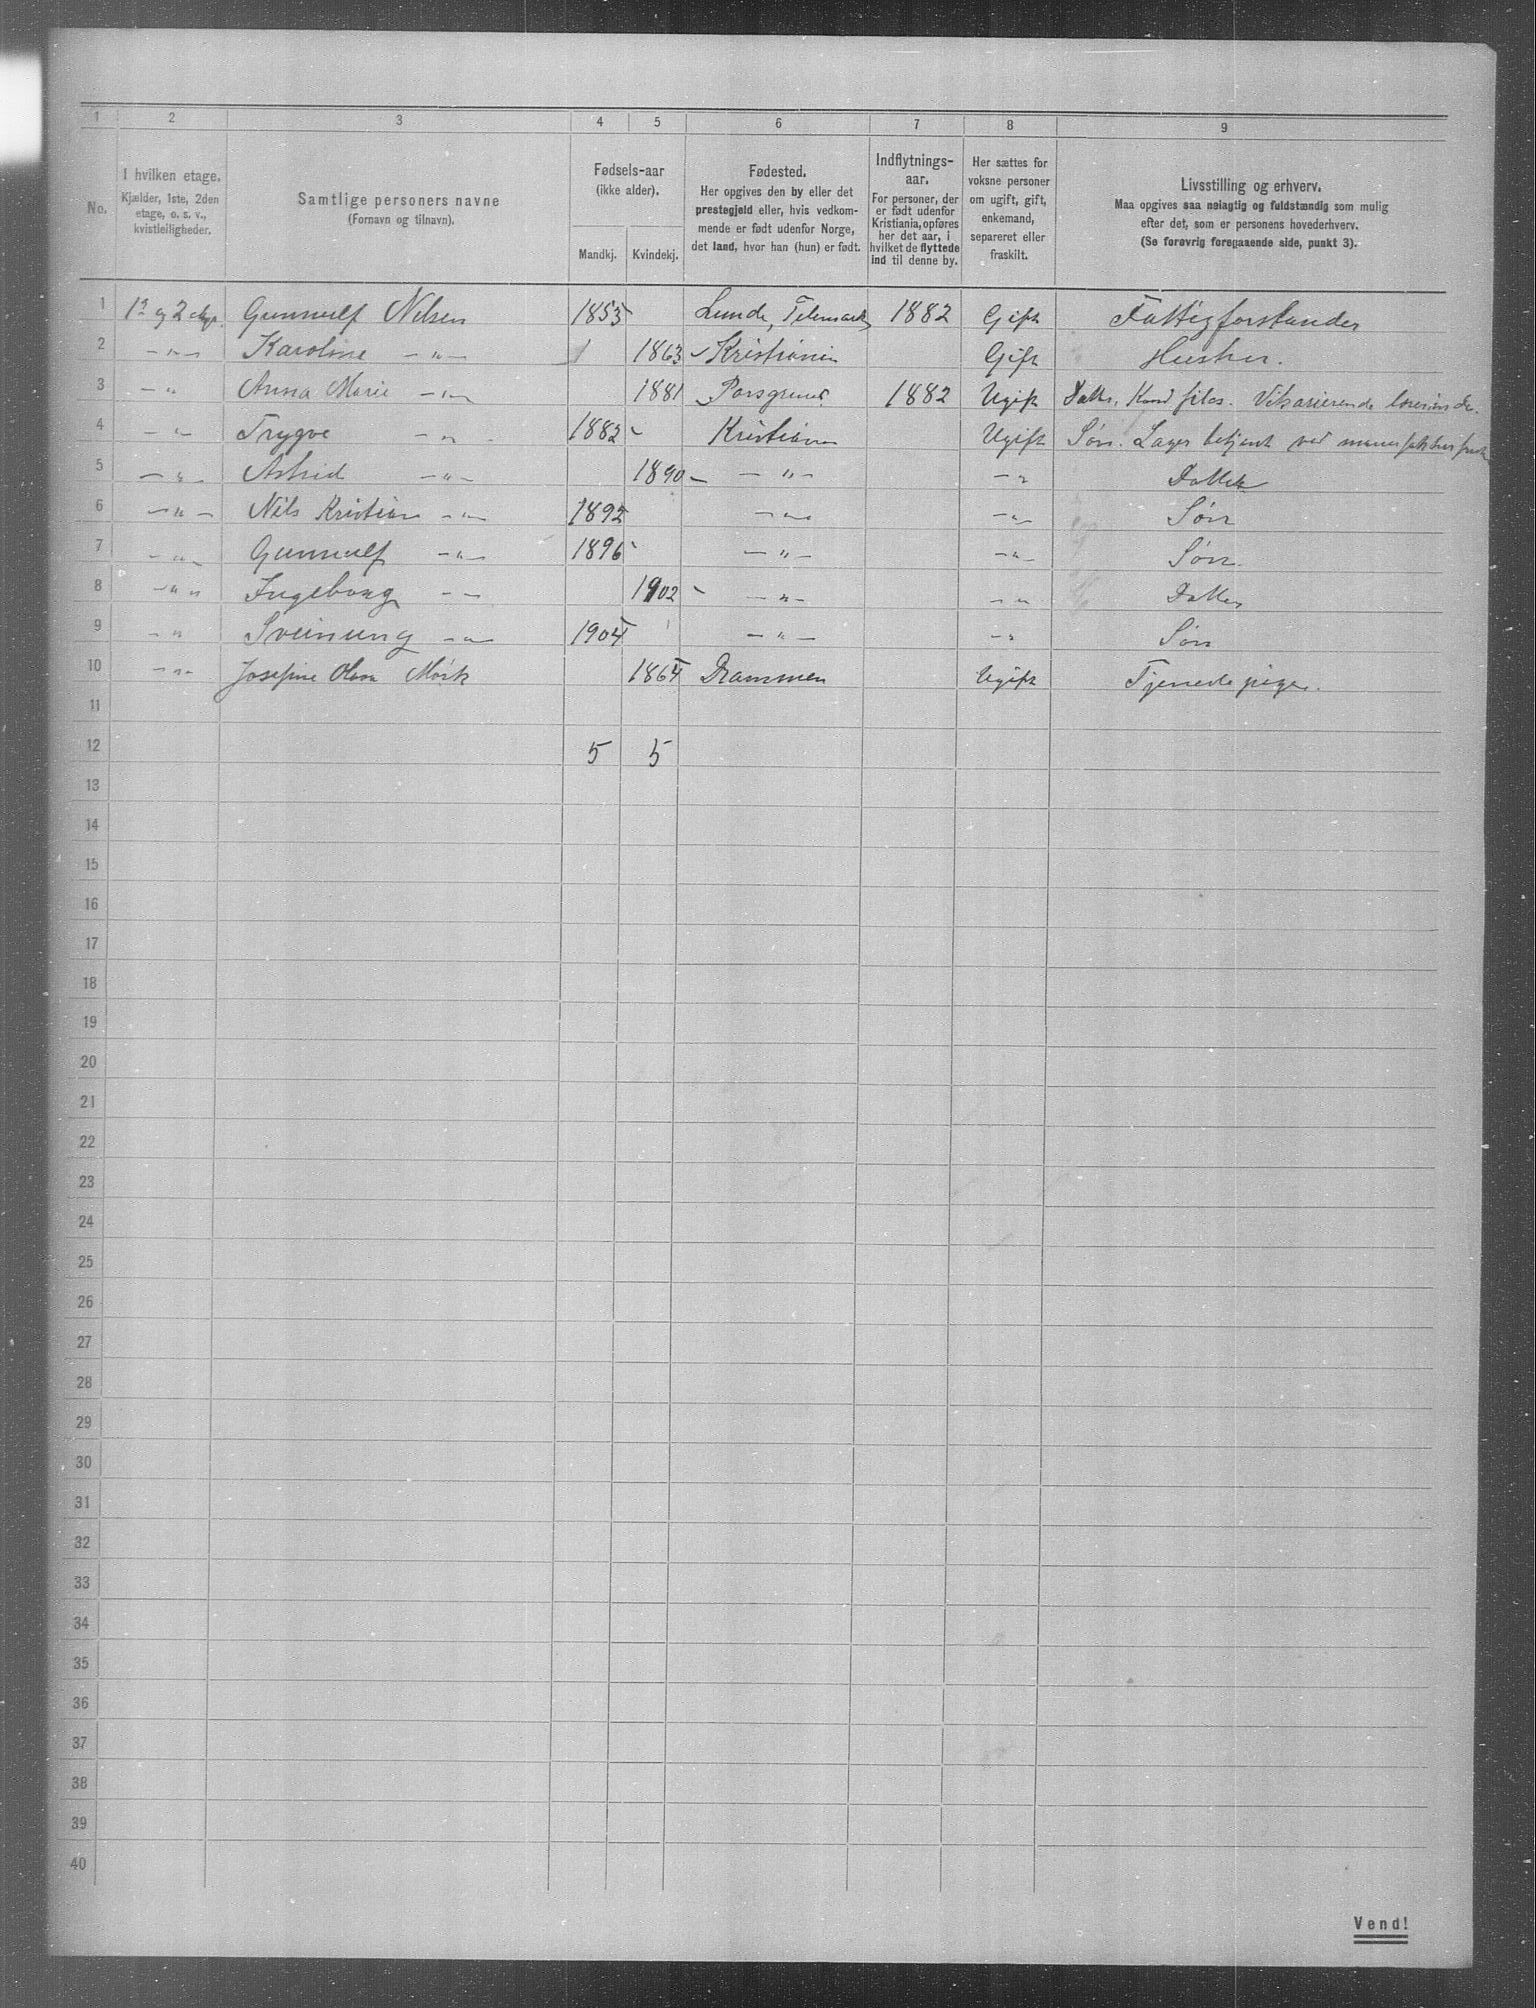 1 2 3 4 5 6 7 8 9
No.
I hvilken etage.
Kjælder, 1ste, 2den
etage, o. s. v.,
kvistleiligheder.
Samtlige personers navne
(Fornavn og tilnavn).
Fødsels-aar
(ikke alder).
Mandkj. Kvindekj.
Fødested.
Her opgives den by eller det
prestegjeld eller, hvis vedkom-
mende er født udenfor Norge,
det land, hvor han (hun) er født.
Indflytnings-
aar.
For personer, der
er født udenfor
Kristiania, opføres
her det aar, i
hvilket de flyttede
ind til denne by.
Her sættes for
voksne personer
om ugift, gift,
enkemand,
separeret eller
fraskilt.
Livsstilling og erhverv.
Maa opgives saa nøiagtig og fuldstændig som mulig
efter det, som er personens hovederhverv.
(Se forøvrig foregaaende side, punkt 3).
1 1ste og 2 etage. Gunnulf Nilsen 1853 Lunde, Telemarken 1882 Gift Fattigforstander
2 -"- Karoline -"- 1863 Kristiania Gift Hustru.
3 -"- Anna Marie -"- 1881 Porsgrund 1882 Ugift Datter, Kand filos. Vikarierende lærerinde.
4 -"- Trygve -"- 1882 Kristiania Ugift Søn. Lager betjent ved
5 -"- Astrid -"- 1890 -"- -"- Datter
6 -"- Nils Kristian -"- 1892 -"- -"- Søn
7 -"- Gunnulf -"- 1896 -"- -"- Søn.
8 -"- Ingeborg -"- 1902 -"- -"- Datter
9 -"- Sveinung -"- 1904 -"- -"- Søn
10 -"- Josefine Olava Mørk 1864 Drammen Ugift Tjenestepige.
11
12 5 5
13
14
15
16
17
18
19
20
21
22
23
24
25
26
27
28
29
30
31
32
33
34
35
36
37
38
39
40
Vend!